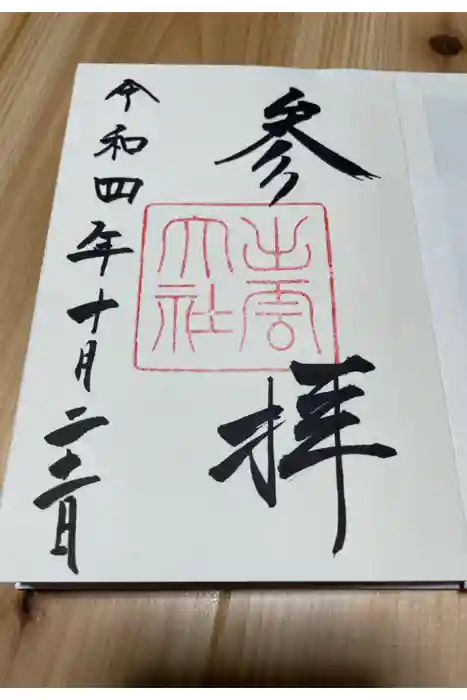 参拝
出雲
大社
令和四年十月二十二日